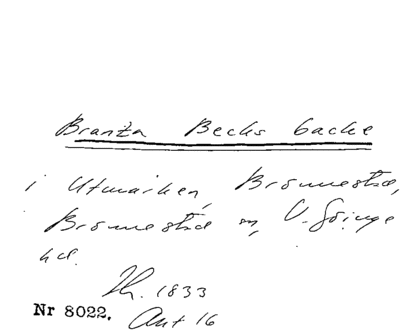 Branta Becks backe
i Utmarken, Brönnestad,
Brönnestad sn, V. Göinge
hd.
Th. 1833
Nr 8022. Ant 16